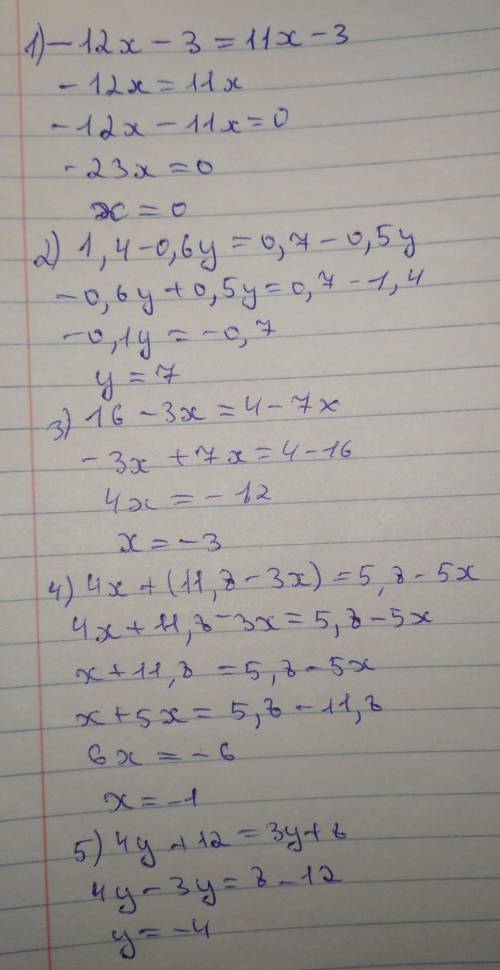 1) -12x - 3 = 11x - 3
-12x = 11x
-12x - 11x = 0
-23x = 0
x = 0
2) 1,4 - 0,6y = 0,7 - 0,5y
-0,6y + 0,5y = 0,7 - 1,4
-0,1y = -0,7
y = 7
3) 16 - 3x = 4 - 7x
-3x + 7x = 4 - 16
4x = -12
x = -3
4) 4x + (11,8 - 3x) = 5,8 - 5x
4x + 11,8 - 3x = 5,8 - 5x
x + 11,8 = 5,8 - 5x
x + 5x = 5,8 - 11,8
6x = -6
x = -1
5) 4y + 12 = 3y + 8
4y - 3y = 8 - 12
y = -4